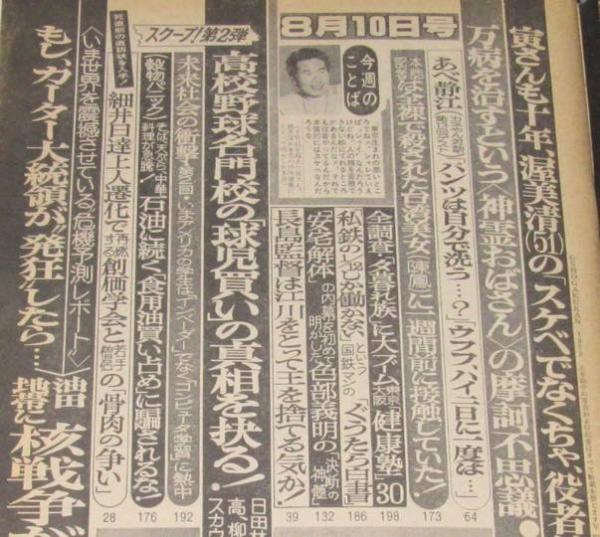 8月10日号
寅さんも十年、渥美清(51)の「スケベでなくちゃ、役者
万病を治すという〈神霊おばさん〉の摩訶不思議。
あべ静江
「パンツは自分で洗う…?」「ウフフ、バイ一日に一度は…」
64
全裸で殺された台湾美女(陳鳳)に一週間前に接触していた!
173
今週のことば
全調査「夕暮れ族」に大ブーム 東京大阪「健康塾」30
198
私鉄の1/2しか働かないという国鉄マンの「ぐうたら白書」
186
「安宅解体」の内幕を初めて明かした色部義明の「決断の神髄」
132
長島監督は江川をとって王を捨てる気か!
39
スクープ!第2弾
高校野球名門校の「球児買い」の真相を抉る!
未来社会の衝撃
第2回・いまアメリカの学生は「インベーダー」でなく「コンピュータ学習」に熱中
192
穀物パニック
そば、天ぷら、中華料理が急騰!
石油に続く「食用油買い占め」に騙されるな!
176
細井日達上人遷化で再燃する創価学会と
の「骨肉の争い」
28
〈いま世界を震撼させている「危機予測レポート」〉
もし、カーター大統領が“発狂”したら…
核戦争が